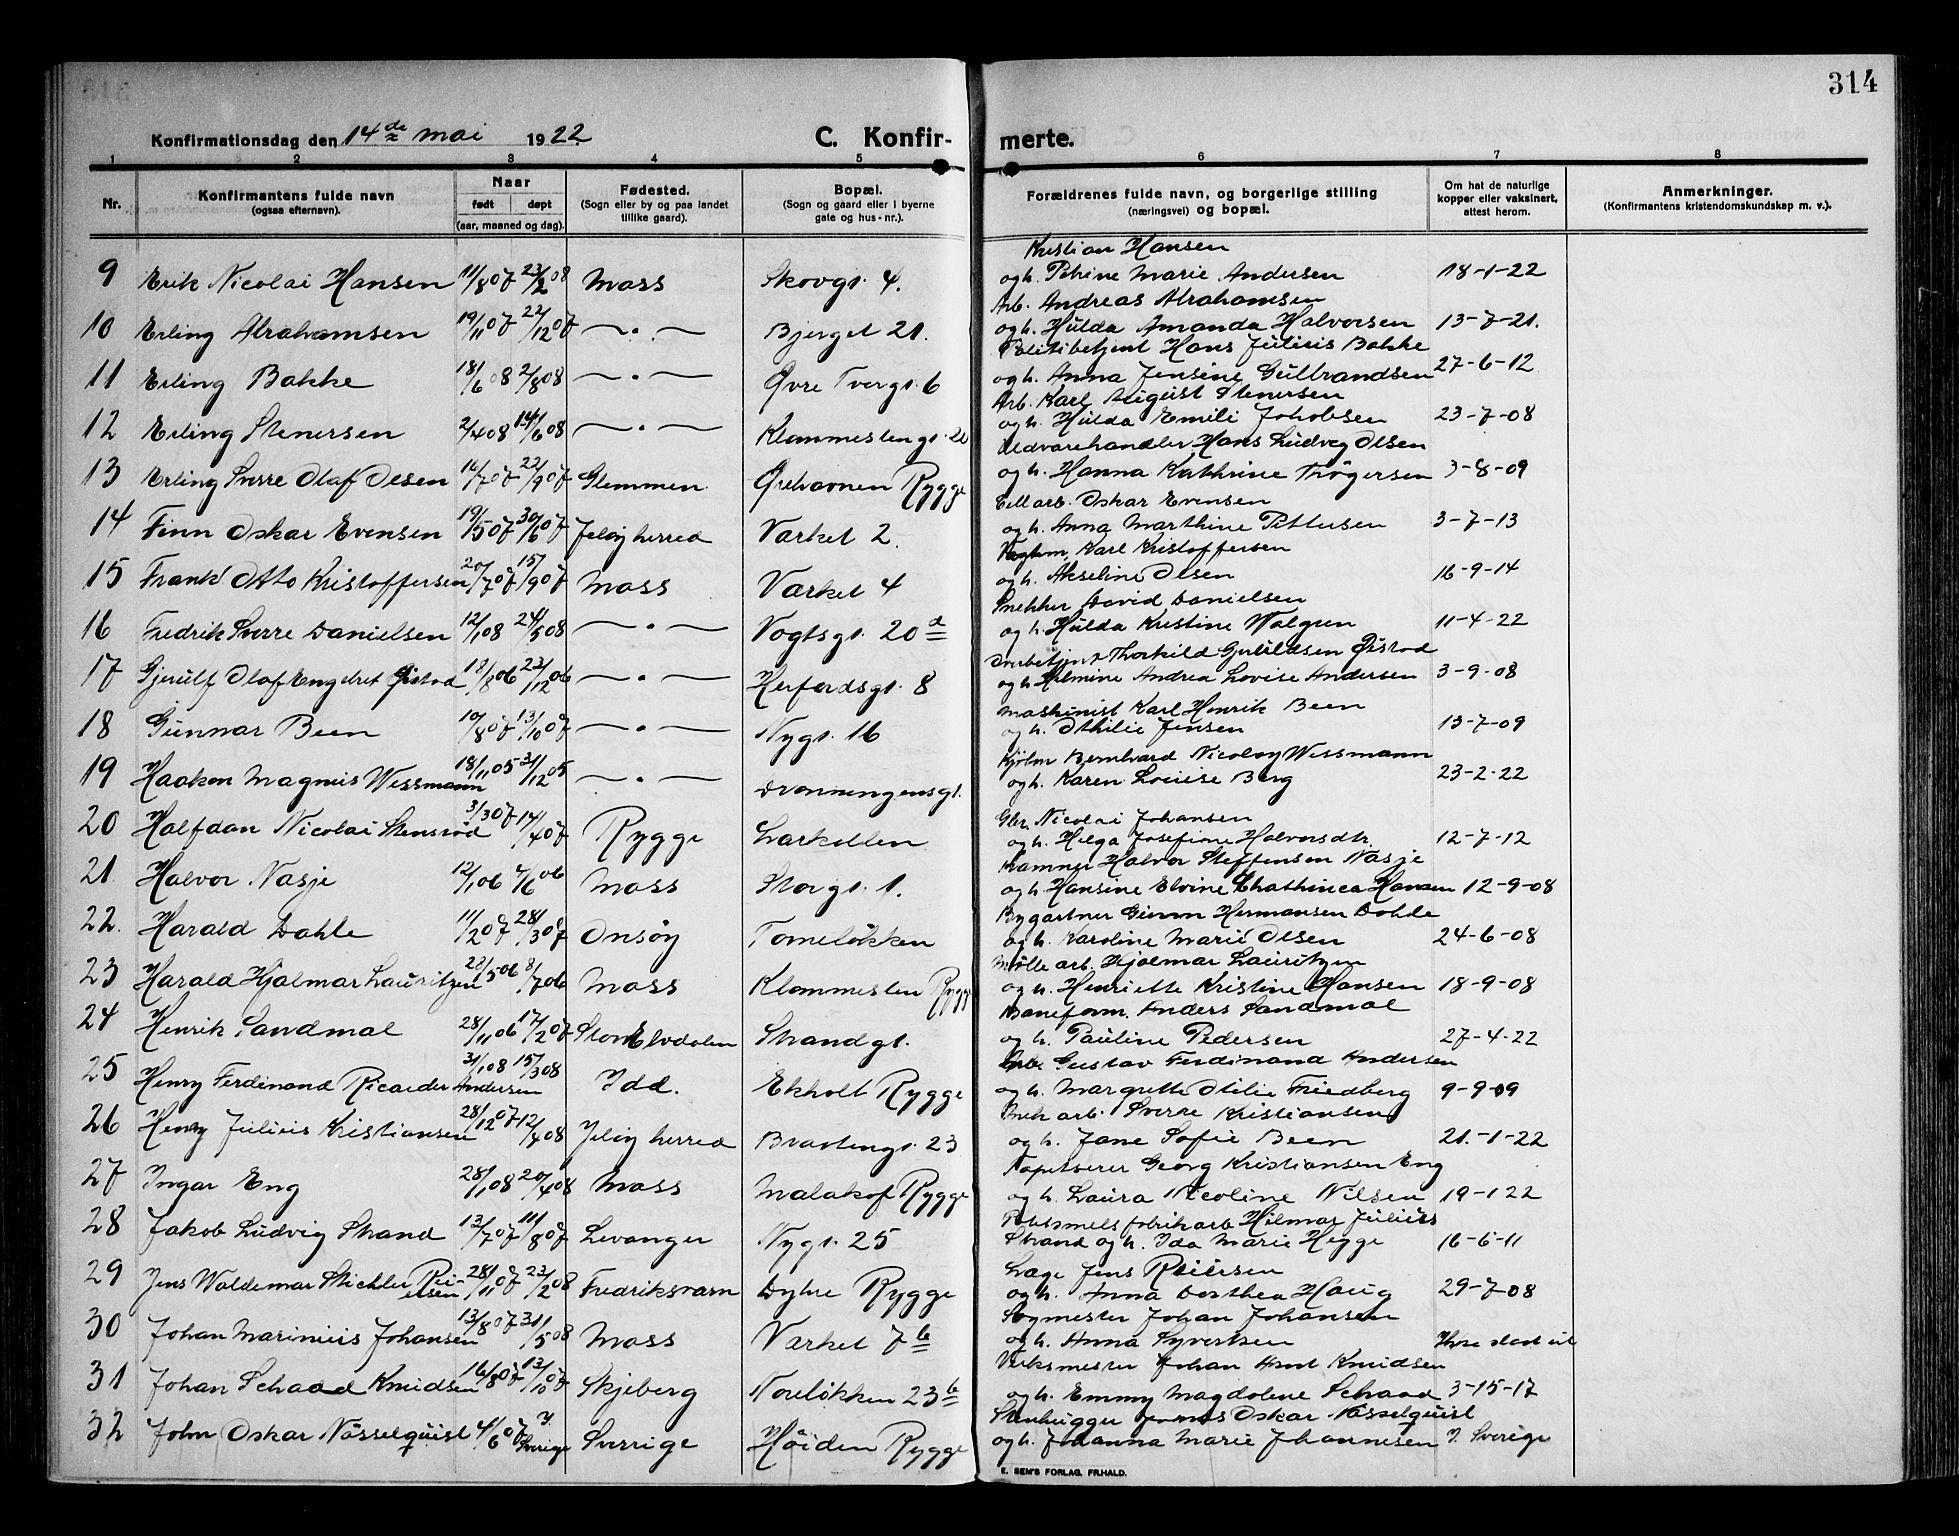 314
Konfirmationsdag den 14de mai 1922. C. Konfirmerte.
1 2 3 4 5 6 7 8
Nr. Konfirmantens fulde navn (ogsaa efternavn). Naar født døpt (aar, maaned og dag). Fødested. (Sogn eller by og paa landet tillike gaard). Bopæl. (Sogn og gaard eller i byerne gate og hus-nr.). Forældrenes fulde navn, og borgerlige stilling (næringsvei) og bopæl. Om hat de naturlige kopper eller vaksinert, attest herom. Anmerkninger. (Konfirmantens kristendomskundskap m. v.).
Kristian Hansen
9 Erik Nicolai Hansen 11/8 07 23/2 08 Moss Skovgt. 4. og h. Petrine Marie Andersen 18-1-22
Arb. Andreas Abrahamsen
10 Erling Abrahamsen 19/11 07 22/12 07 — " — Bjerget 21. og h. Hulda Amanda Halvorsen 13-7-21.
Politibetjent Hans Julius Bakke
11 Erling Bakke 18/6 08 2/8 08 — " — Øvre Tvergt. 6 og h. Anna Jensine Gulbrandsen 27-6-12
Arb. Karl August Stenersen
12 Erling Stenersen 2/4 08 14/6 08 — " — Klommestengt. 20 og h. Hulda Emilie Jakobsen 23-7-08
Vedvarehandler Hans Ludvig Olsen
13 Erling Sverre Olaf Olsen 14/7 07 22/9 07 Glemmen Ørehavnen Rygge og h. Hanna Kathrine Thøgersen 3-8-09
Cell arb. Oskar Evensen
14 Finn Oskar Evensen 19/5 07 30/6 07 Jeløy herred Værket 2. og h. Anna Marthine Pettersen 3-7-13
Karl Kristoffersen
15 Frank Otto Kristoffersen 20/7 07 15/9 07 Moss Værket 4 og h. Akseline Olsen 16-9-14
Snekker David Danielsen
16 Fredrik Sverre Danielsen 12/1 08 24/5 08 — " — Vogtsgt. 20d og h. Hulda Kristine Walgren 11-4-22
Thorkild Gjerulfsen Ørstad
17 Gjerulf Olaf Engebret Ørstad 18/8 06 23/12 06 — " — Herfordsgt. 8 og h. Helmine Andrea Lovise Andersen 3-9-08
Maskinist Karl Henrik Been
18 Gunnar Been 10/8 07 13/10 07 — " — Nygt. 16 og h. Othilie Jensen 13-7-09
Kjøbm Bernhard Nicolay Wessmann
19 Haakon Magnus Wessmann 18/11 05 31/12 05 — " — Dronningensgt. og h. Karen Louise Berg 23-2-22
Gbr. Nicolai Johansen
20 Halfdan Nicolai Stensrød 3/3 07 14/4 07 Rygge Larkollen og h. Helga Josefine Halvorsdtr. 12-7-12
Kamner Halvor Steffensen Nasje
21. Halvor Nasje 12/1 06 4/6 06 Moss Storgt. 1. og h. Hansine Elvine Hansen 12-9-08
Bygartner Gunn Hermansen Dahle
22. Harald Dahle 11/2 07 28/3 07 Onsøy Tomeløkken og h. Karoline Marie Olsen 24-6-08
Mølle arb. Hjalmar Lauritzen
23 Harald Hjalmar Lauritzen 28/5 06 8/7 06 Moss Klommesten Rygge og h. Henriette Kristine Hansen 18-9-08
Baneform. Anders Sandmæl
24 Henrik Sandmæl 28/11 06 17/2 07 StorElvdalen Strandgt. og h. Pauline Pedersen 27-4-22
Arb. Gustav Ferdinand Andersen
25 Henry Ferdinand Ricarder Andersen 31/1 08 15/3 08 Idd. Ekholt Rygge og h. Margrette Otilie Friedberg 9-9-09
Mek arb. Sverre Kristiansen
26 Henry Julius Kristiansen 28/12 07 12/4 08 Jeløy herred Bråtengt. 23 og h. Jane Sofie Been 21.-1-22
Tapetserer Georg Kristiansen Eng
27 Ingar Eng 28/1 08 20/4 08 Moss Malakof Rygge og h. Laura Nicoline Nilsen 19-1 22
Potetmels fabrikarb Hilmar Julius
28 Jakob Ludvig Strand 13/7 07 11/8 07 Levanger Nygt. 25 Strand og h. Ida Marie Hegge 16-6-11
Læge Jens Reiersen
29 Jens Waldemar Stichler Reiersen 28/11 07 23/2 08 Fredriksværn Dyhre Rygge og h. Anna Dorthea Haug 29-7-08
Sagmester Johan Johansen
30 Johan Marinius Johansen 13/8 07 31/5 08 Moss Værket 7b og h. Anna Syvertsen
Verksmester Johan Amt Knudsen
31 Johan Schaad Knudsen 16/8 07 13/10 07 Skjeberg Noreløkken 23b og h. Emmy Magdalene Schaad 3-15-17
Stenhugger Oskar Nässelquist
32 John Oskar Nässelquist 4/6 07 I Sverige Sverrige Høiden Rygge og h. Johanna Marie Johannesen I Sverige
E. SEM'S FORLAG, FR.HALD.